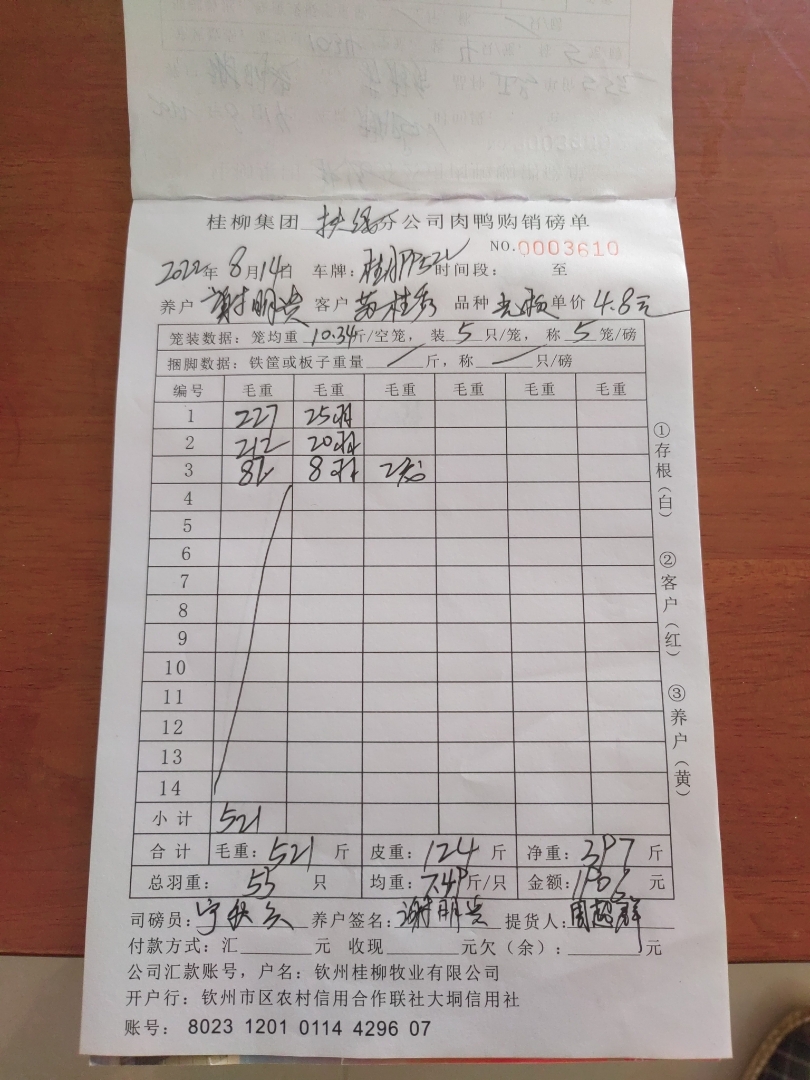 桂柳集团 扶绥分公司肉鸭购销磅单
NO.0003610
2022年 8月14日 车牌: 时间段: 至
养户 谢明贵 客户 苏桂秀 品种 单价 4.8元
笼装数据: 笼均重 10.34斤/空笼, 装 5 只/笼, 称 5 笼/磅
捆脚数据: 铁筐或板子重量 / 斤, 称 / 只/磅
编号 毛重 毛重 毛重 毛重 毛重 毛重
1 227 25羽
2 212 20羽
3 82 8羽 2笼
4
5
6
7
8
9
10
11
12
13
14
小计 521
合计 毛重: 521 斤 皮重: 124 斤 净重: 397 斤
总羽重: 53 只 均重: 7.49斤/只 金额: 1905 元
司磅员: 养户签名: 谢明贵 提货人: 周超群
付款方式: 汇 元 收现 元欠(余): 元
公司汇款账号, 户名: 钦州桂柳牧业有限公司
开户行: 钦州市区农村信用合作联社大垌信用社
账号: 8023 1201 0114 4296 07
①存根(白)
②客户(红)
③养户(黄)